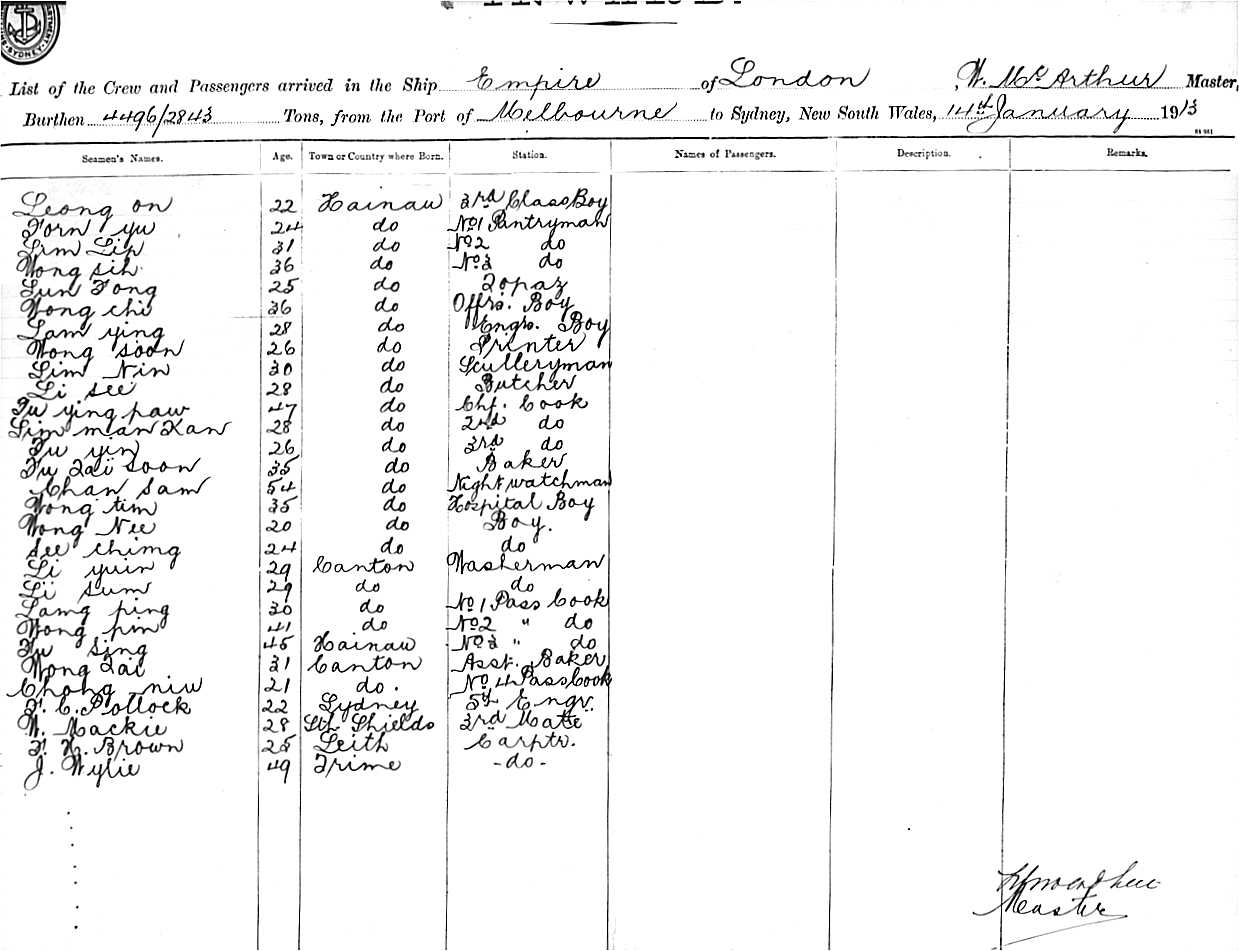 SYDNEY
INWARD.
List of the Crew and Passengers arrived in the Ship Empire of London, W. McArthur Master,
Burthen 4496/2843 Tons, from the Port of Melbourne to Sydney, New South Wales, 14th January 1913
Seamen's Names. Age. Town or Country where Born. Station. Names of Passengers. Description. Remarks.
Leong on 22 Hainau 3rd Class Boy
Forn yu 24 do No1 Pantryman
Lim Lip 31 do No2 do
Wong sih 36 do No3 do
Lun Fong 25 do Topaz
Wong chi 36 do Offrs. Boy
Lam ying 28 do Engrs. Boy
Wong soon 26 do Printer
Lim Nin 30 do Sculleryman
Li see 28 do Butcher
Fu ying paw 47 do Chf. Cook
Lim mian Kan 28 do 2nd do
Fu yin 26 do 3rd do
Fu Tai soon 35 do Baker
Chan Sam 54 do Night watchman
Wong tim 35 do Hospital Boy
Wong Nee 20 do Boy.
see ching 24 do do
Li yuin 29 Canton Washerman
Li sum 29 do do
Lamg ping 30 do No1 Pass Cook
Wong pin 41 do No2 " do
Fu Sing 45 Hainau No3 " do
Wong Tai 31 Canton Asst. Baker
Chong niw 21 do. No 4 Pass Cook
F. C. Pollock 22 Sydney 5th Engr.
W. Mackie 28 Sth Shields 3rd Mate
F. H. Brown 25 Leith Carptr.
J. Wylie 49 Frime -do-
Master